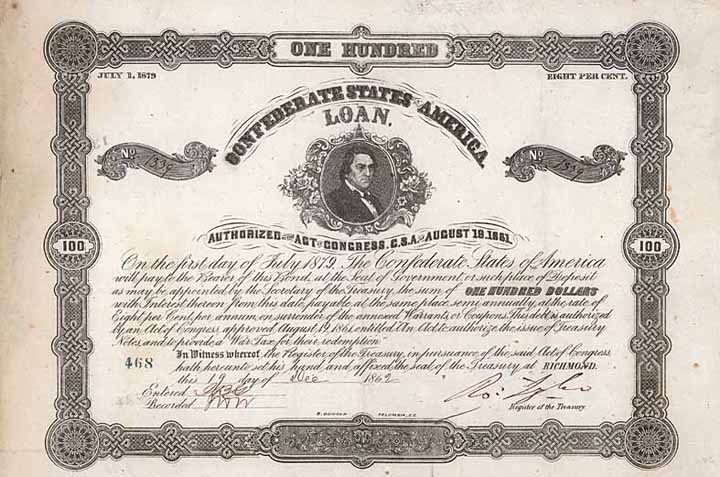 ONE HUNDRED
JULY 1, 1879
EIGHT PER CENT.
CONFEDERATE STATES OF AMERICA.
LOAN.
No
No
AUTHORIZED BY ACT OF CONGRESS, C.S.A. OF AUGUST 19, 1861.
100
100
On the first day of July 1879, The Confederate States of America
will pay to the Bearer of this Bond, at the Seat of Government or such place of Deposit
as may be appointed by the Secretary of the Treasury, the sum of ONE HUNDRED DOLLARS
with Interest thereon from this date, payable at the same place semi annually, at the rate of
Eight per Cent, per annum, on surrender of the annexed Warrants or Coupons. This debt is authorized
by an Act of Congress approved August 19, 1861, entitled "An Act to authorize the issue of Treasury
Notes and to provide a War Tax for their redemption"
468
In Witness whereof, the Register of the Treasury, in pursuance of the said Act of Congress
hath hereunto set his hand and affixed the seal of the Treasury at RICHMOND.
this 19 day of Dec 1862
Entered
Recorded
Ro: Tyler
Register of the Treasury
COLUMBIA, S.C.